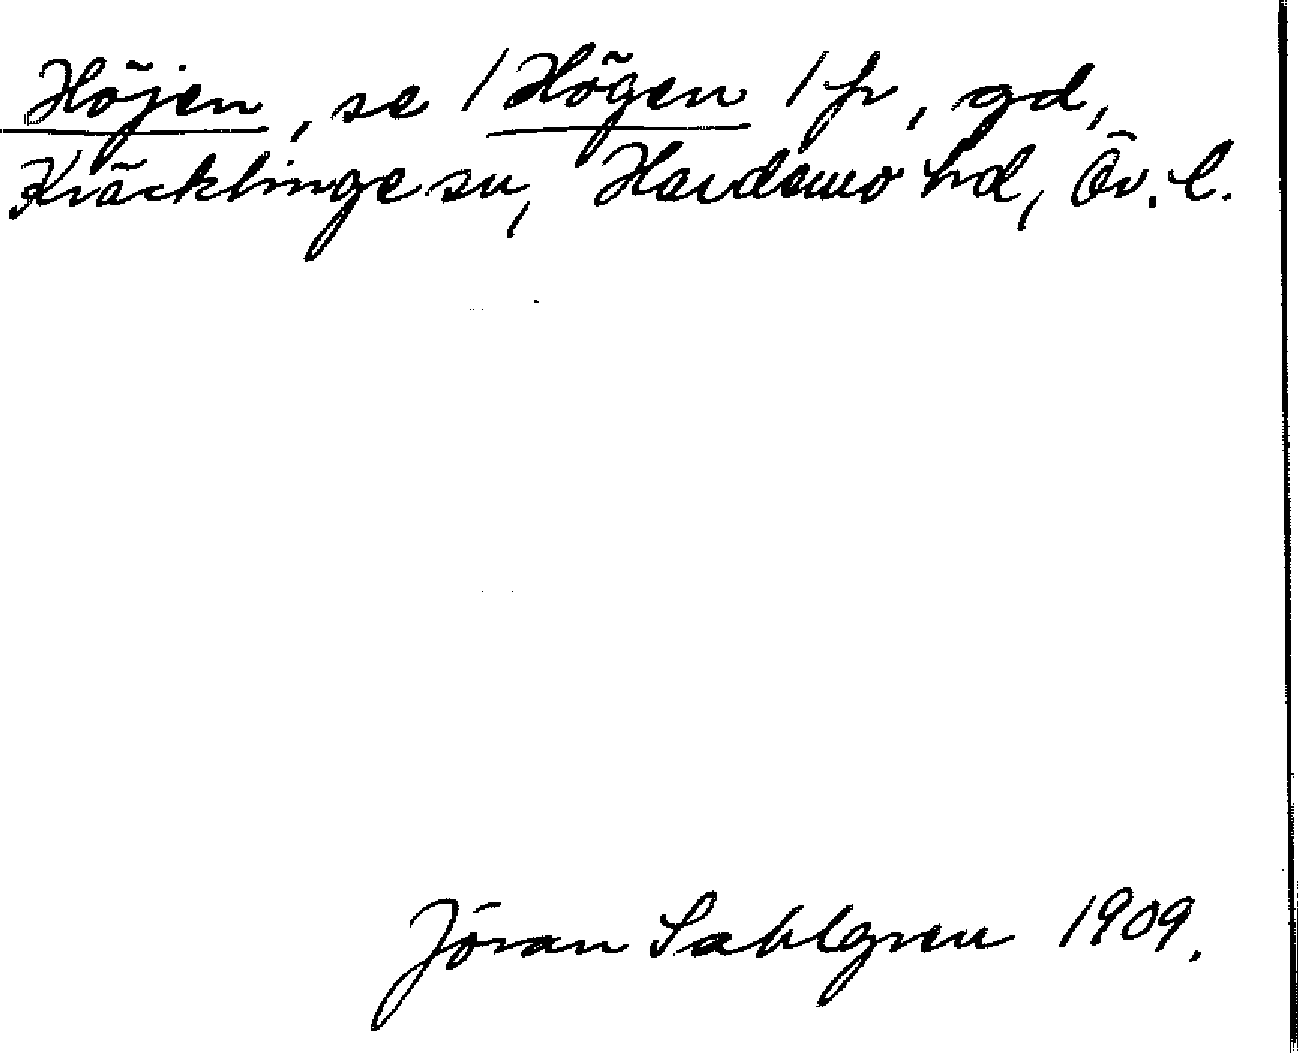 Höjen, se /Högen/ fr, gd,
Kräcklinge sn, Hardemo hd, Ör. l.
Jöran Sahlgren 1909.